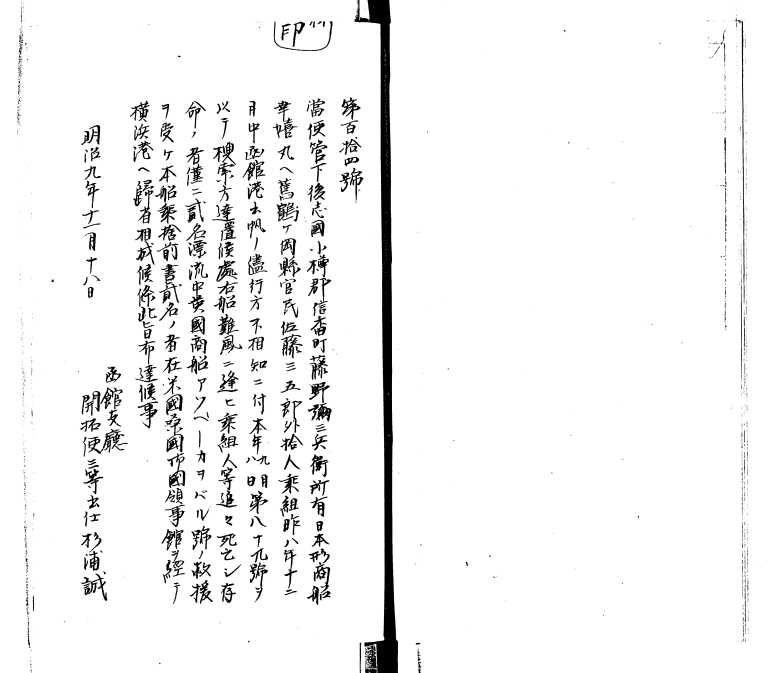 印
第百拾四號
當使管下後志國小樽郡信香町藤野彌三兵衛所有日本形商船
幸嬉丸ヘ舊鶴ケ岡縣官民佐藤三五郎外拾人乘組昨八年十二
月中函館港出帆ノ儘行方不相知ニ付本年九月八日第八十九號ヲ
以テ搜索方達置候處右船難風ニ逢ヒ乘組人等追々死亡シ存
命ノ者僅ニ貳名漂流中英國商船アソベーカヲバル號ノ救援
ヲ受ケ本船乘捨前書貳名ノ者在米國桑國市國領事館ヲ經テ
橫浜港ヘ歸着相成候條此旨布達候事
明治九年十一月十八日
函館支廳
開拓使三等出仕杉浦誠